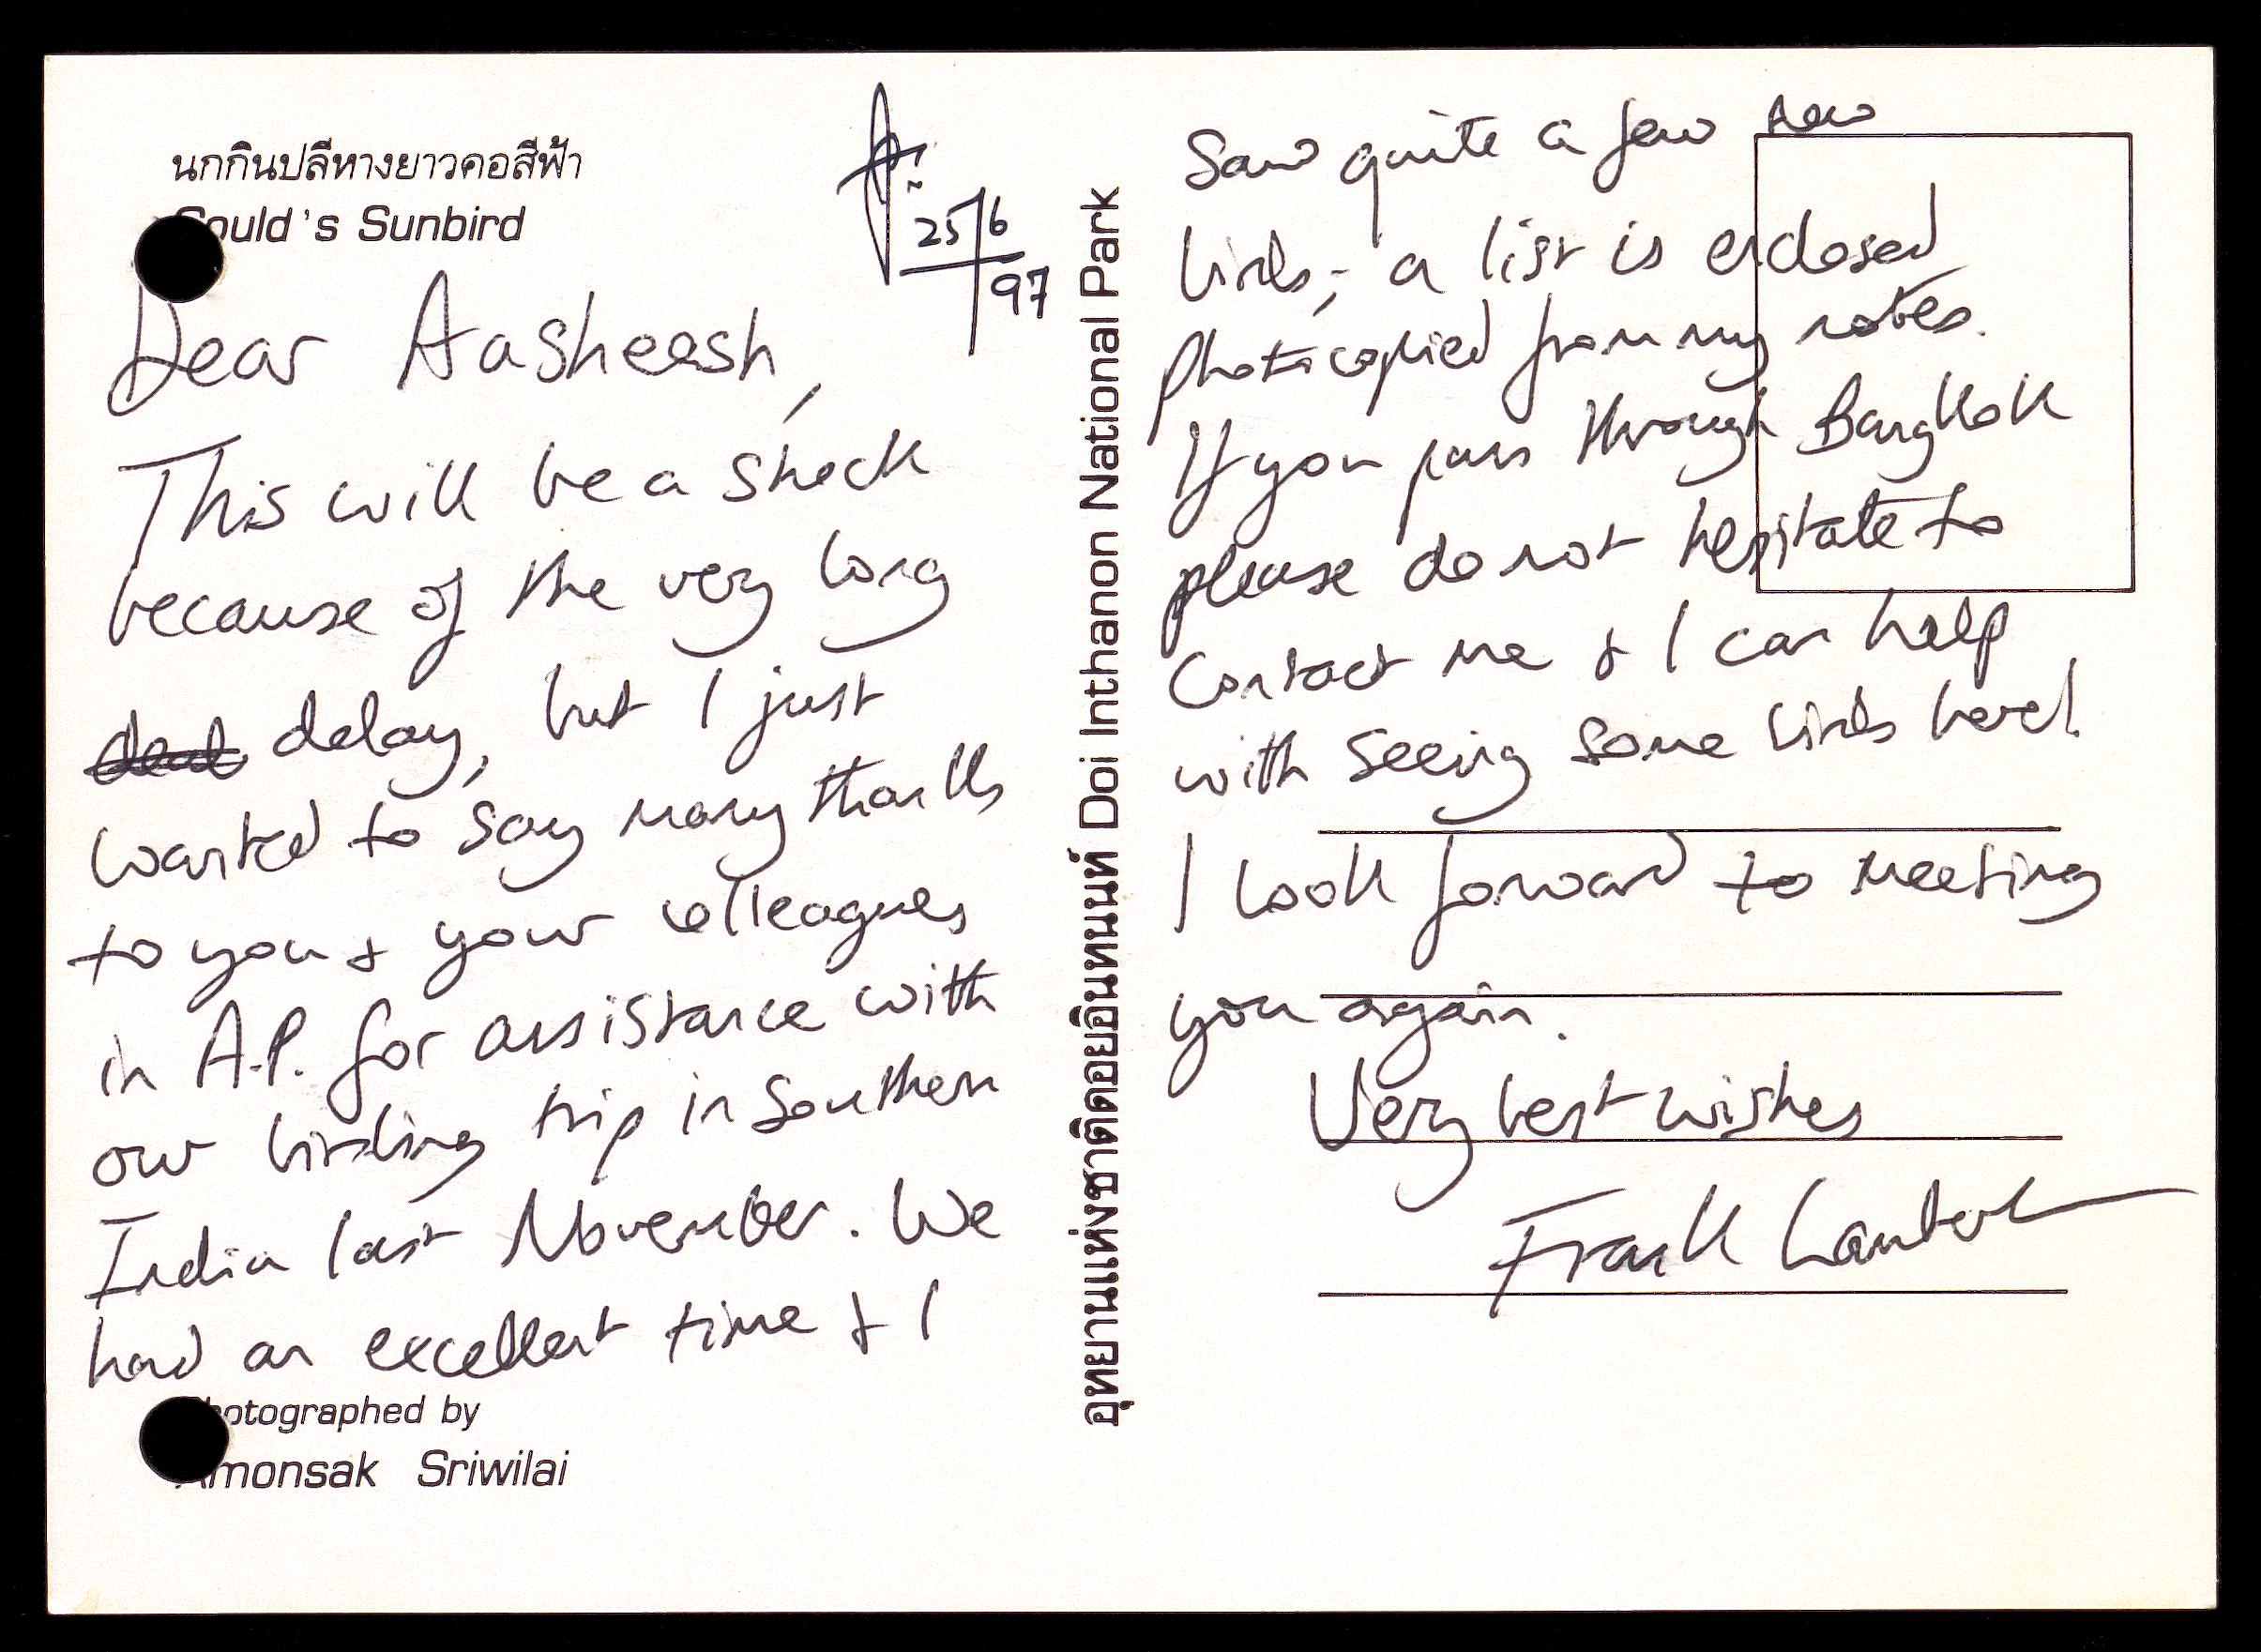 นกกินปลีหางยาวคอสีฟ้า
Gould's Sunbird
25/6
97
Dear Aasheesh,
This will be a shock
because of the very long
delay, but I just
wanted to say many thanks
to you & your colleagues
in A.P. for assistance with
our birding trip in Southern
India last November. We
had an excellent time & I
Photographed by
Amonsak Sriwilai
อุทยานแห่งชาติดอยอินทนนท์ Doi Inthanon National Park
Saw quite a few new
birds; a list is enclosed
photocopied from my notes.
If you pass through Bangkok
please do not hesitate to
contact me & I can help
with seeing some birds here!
I look forward to meeting
you again.
Very best wishes
Frank Lambert